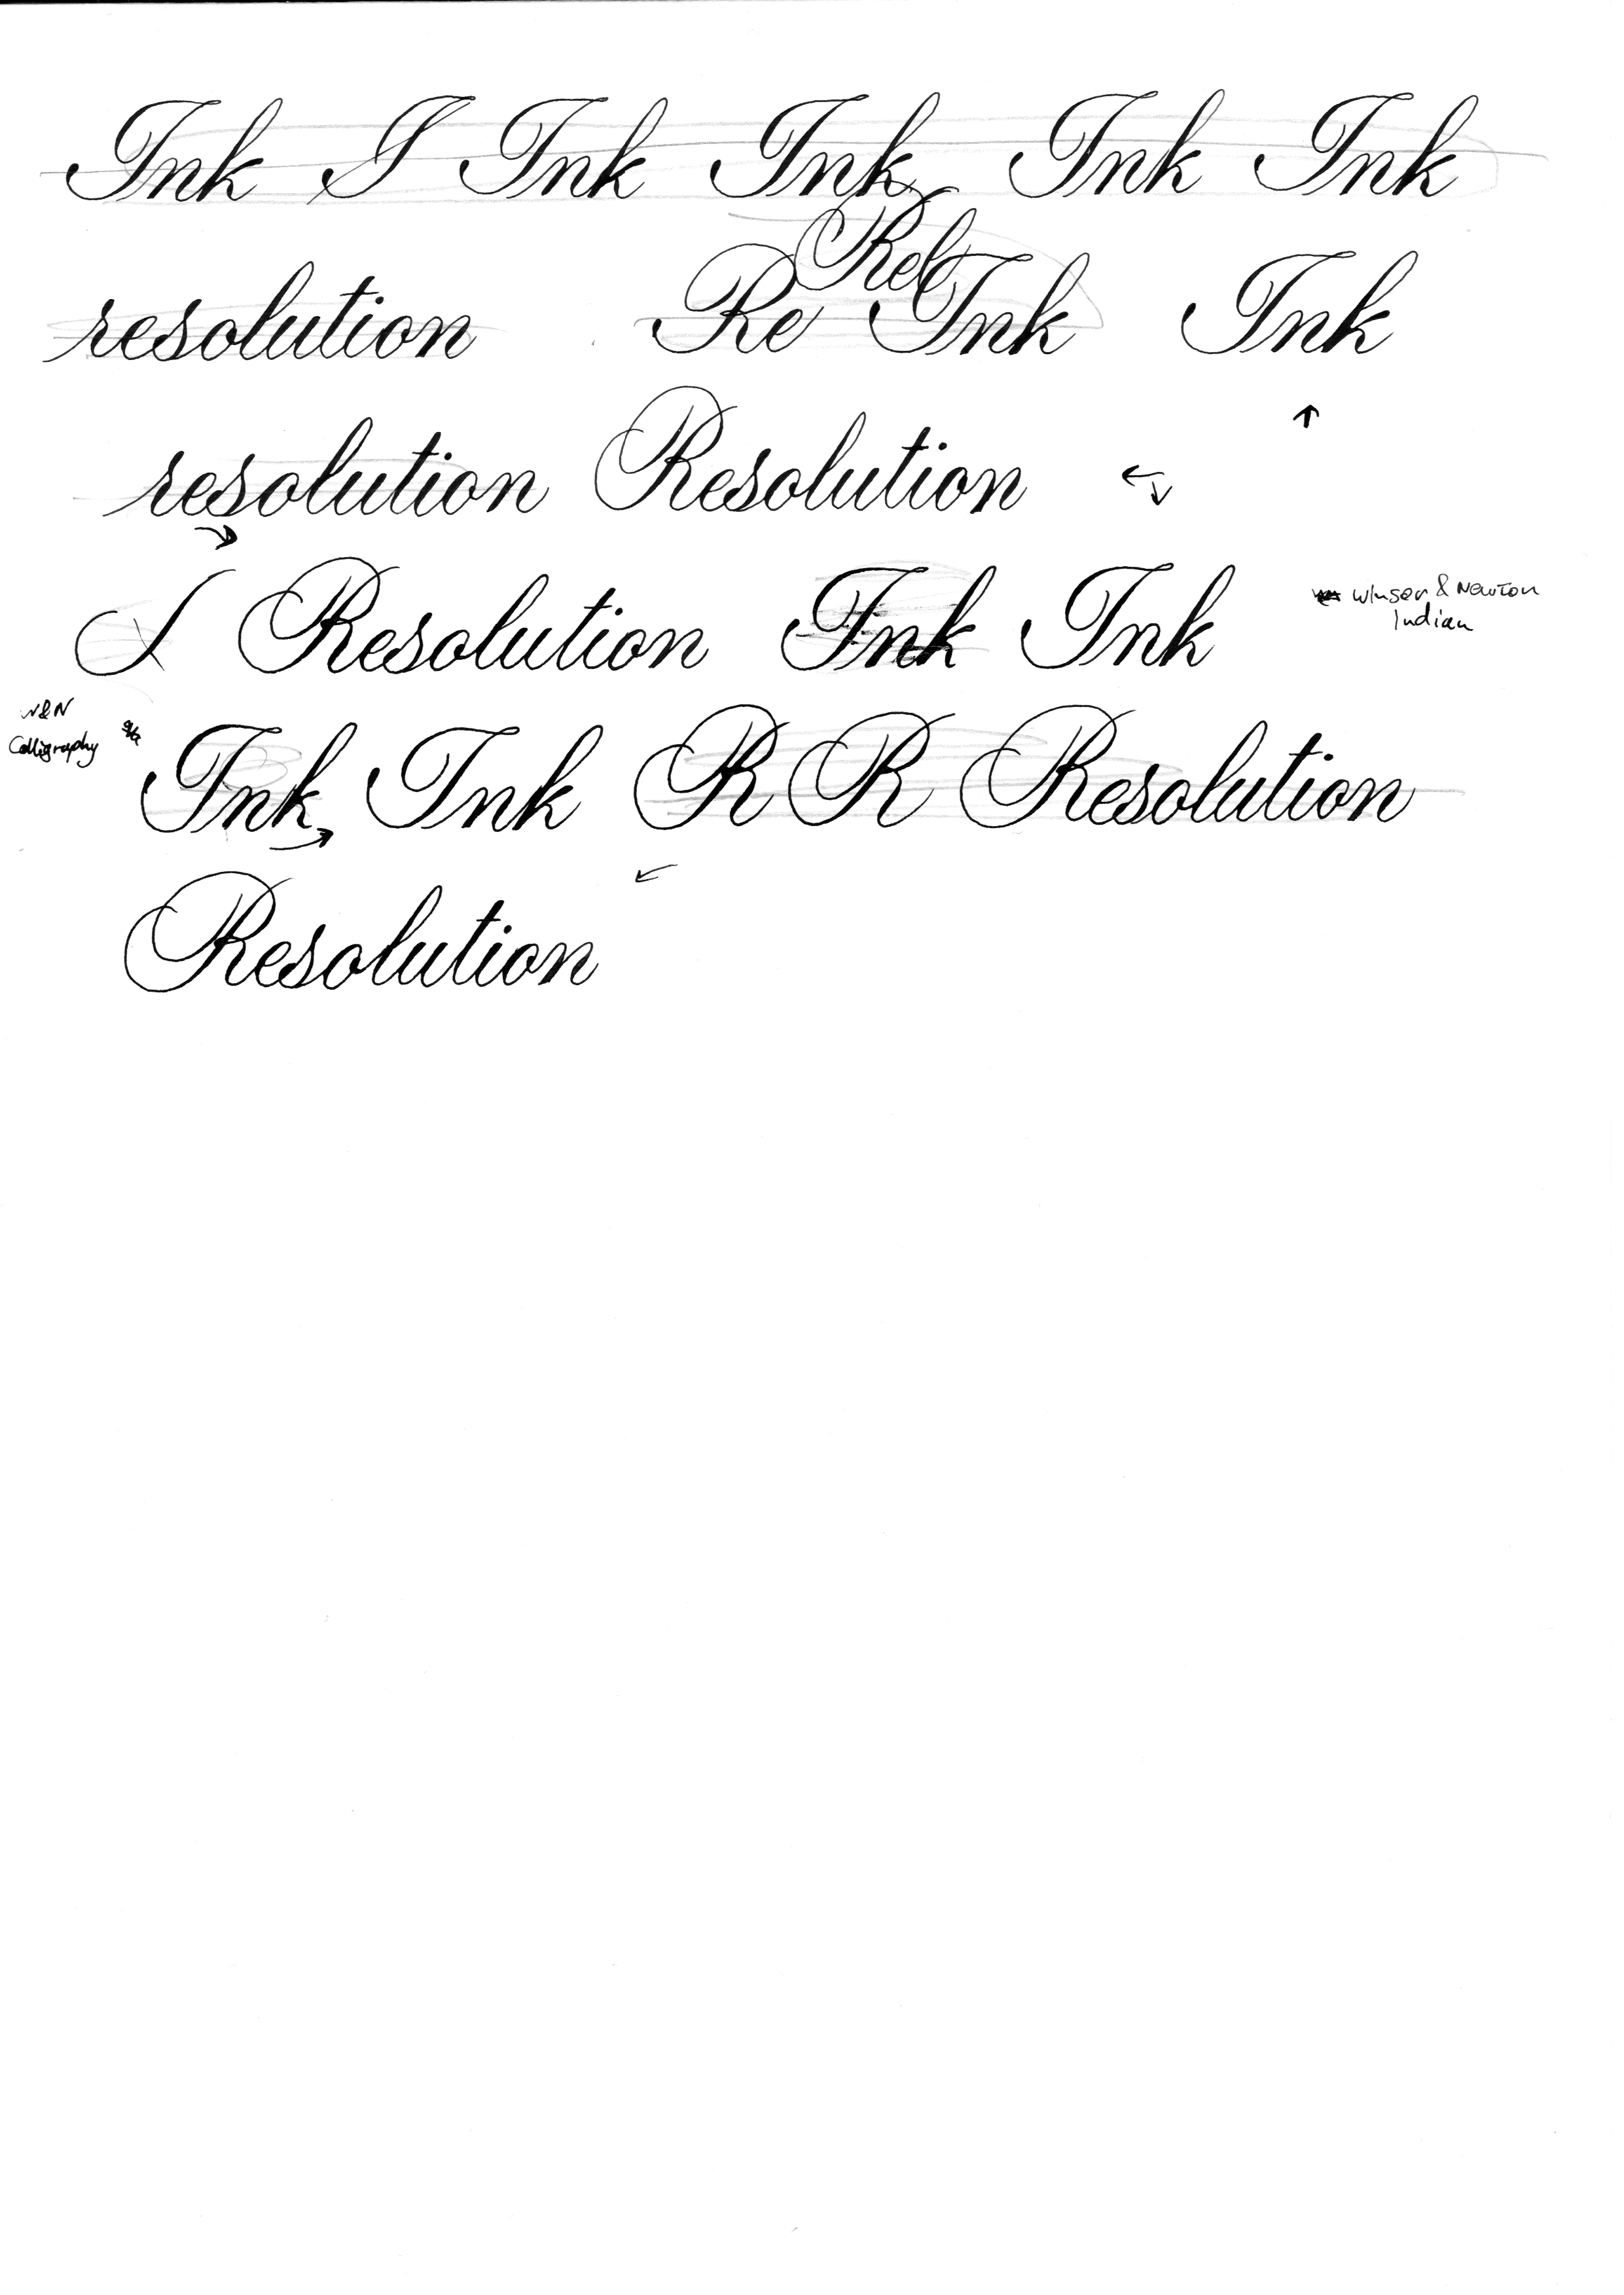 Ink I Ink Ink Ink Ink
Rel
resolution Re Ink Ink
resolution Resolution
I Resolution Ink Ink
Winsor & Newton
Indian
W&N
Calligraphy
Ink Ink R R Resolution
Resolution